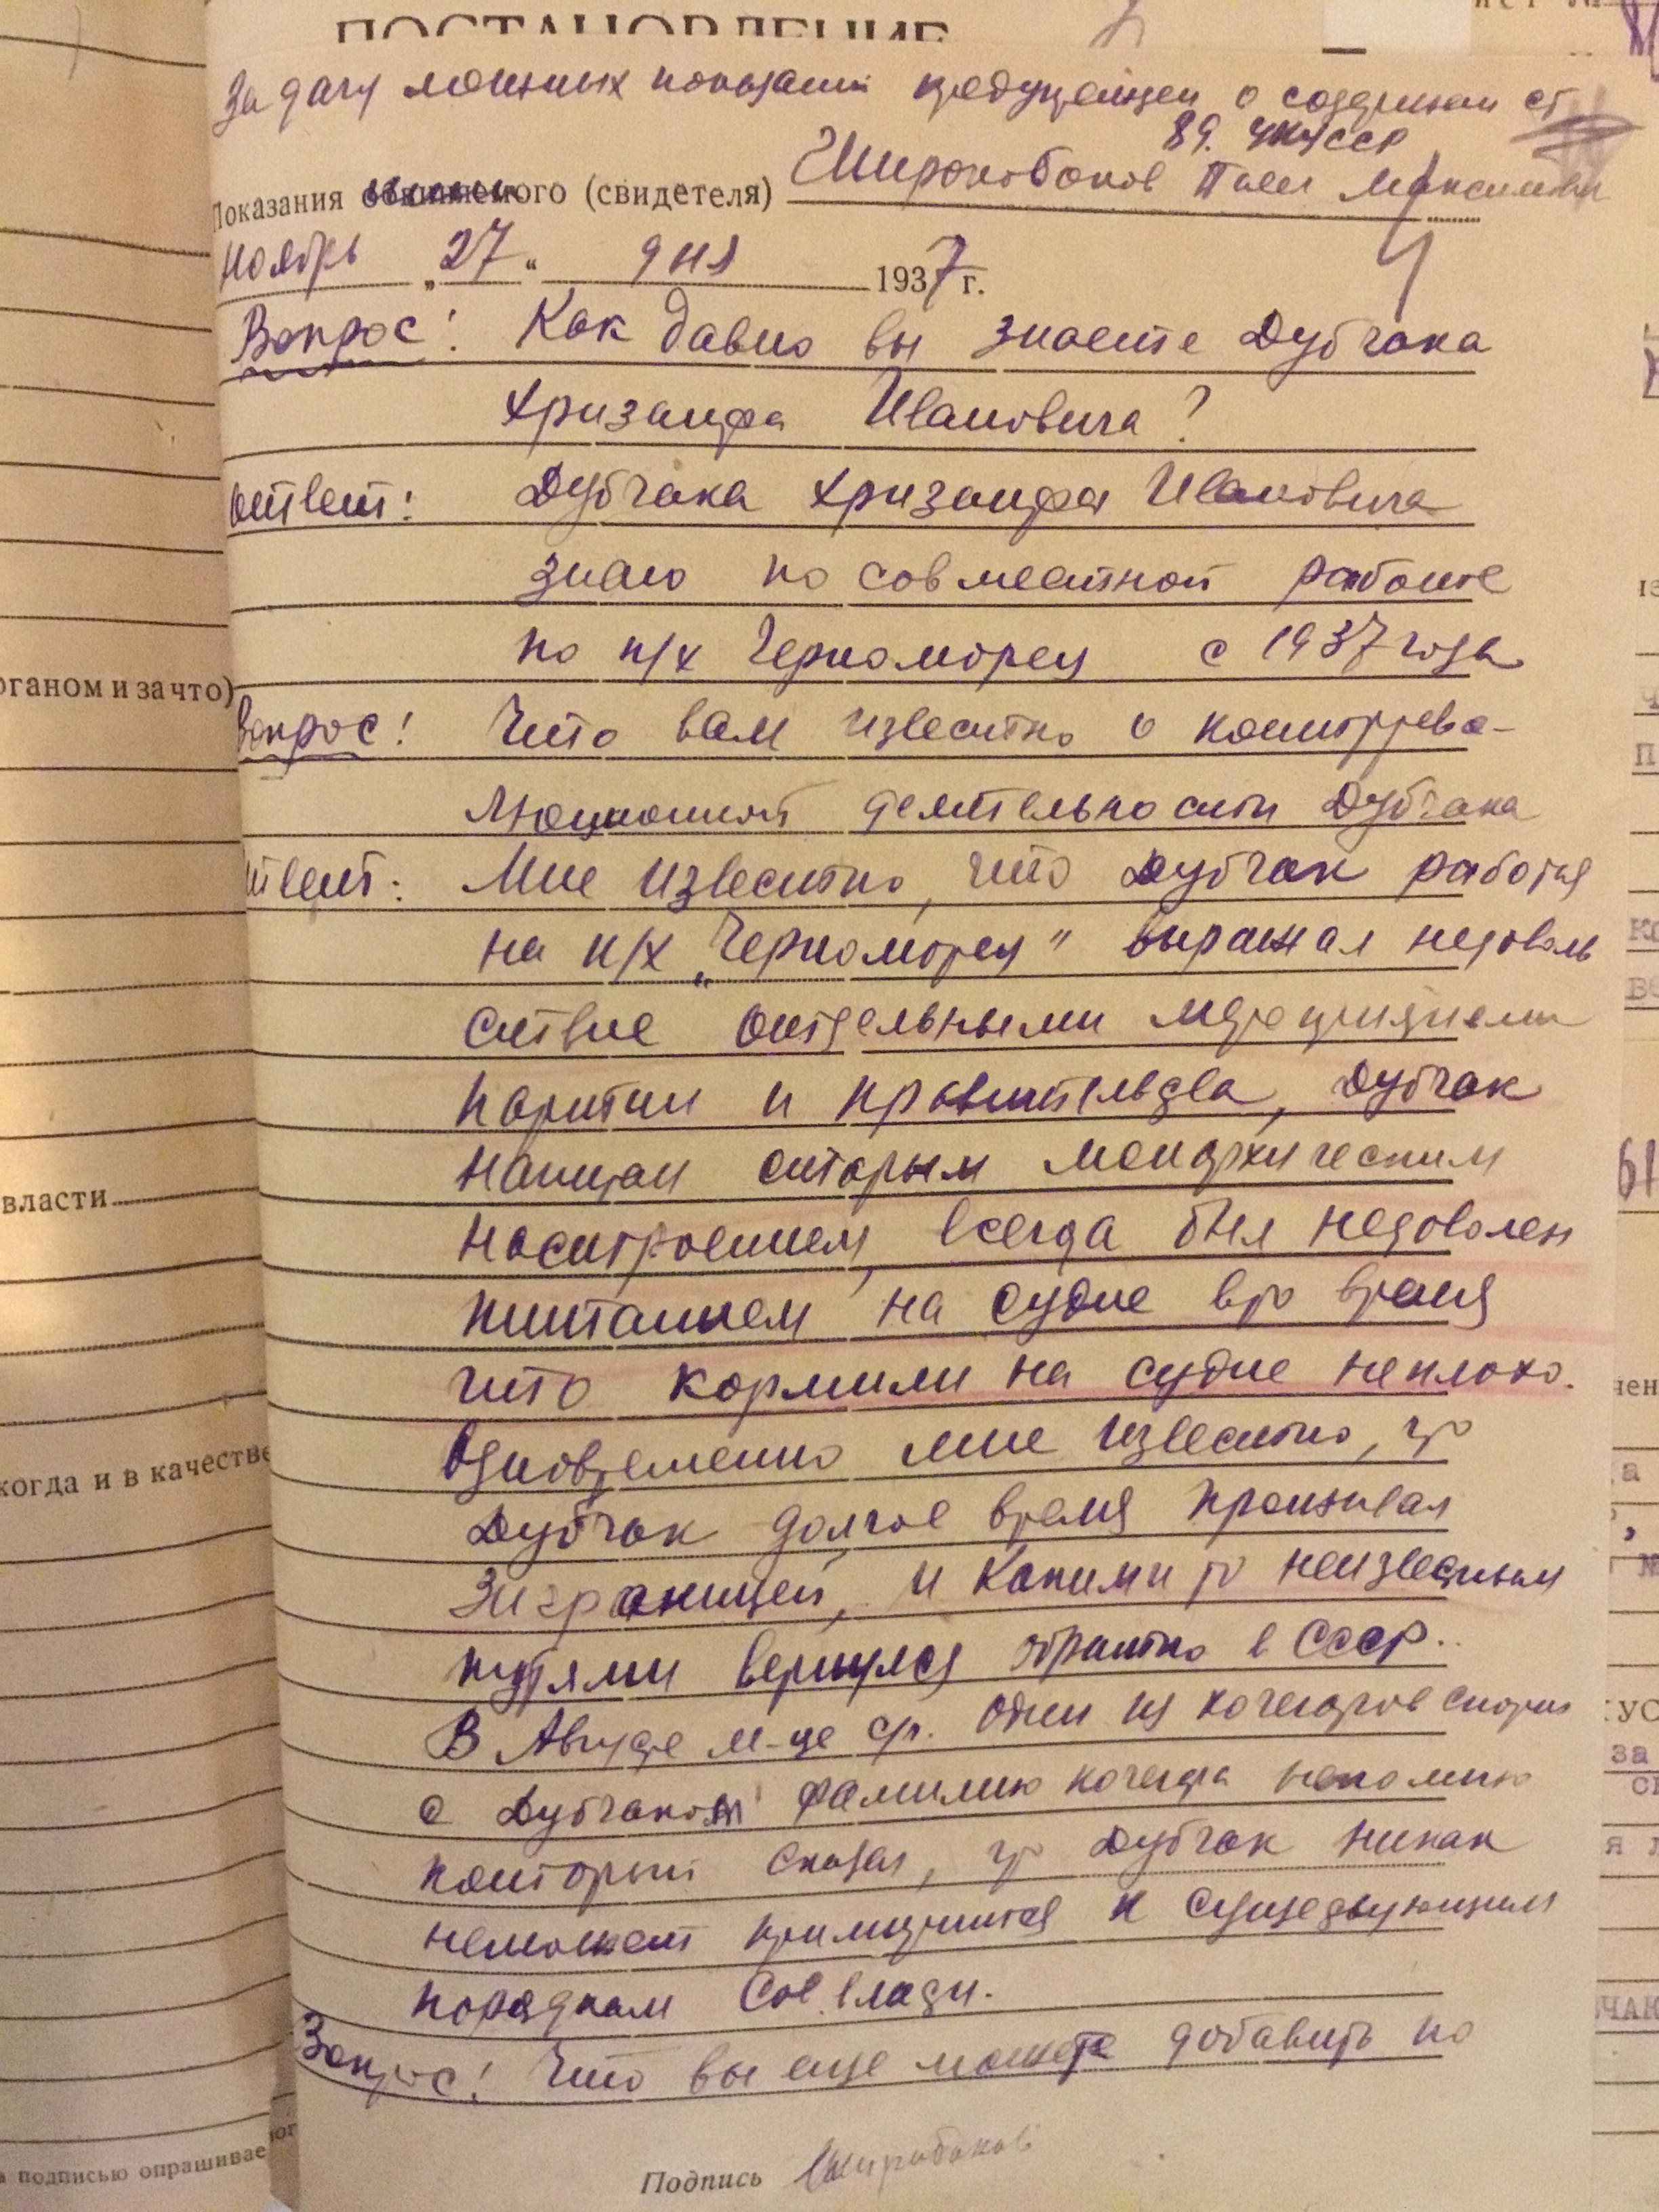 ПОСТАНОВЛЕНИЕ
За дачу ложных показаний предупрежден о содержании ст
89. УК УССР
Показания обвиняемого (свидетеля) Широкобоков Павел Максимович
4
Ноябрь „27“ дня 1937 г.
Вопрос! Как давно вы знаете Дубчака
Хризанфа Ивановича?
Ответ: Дубчака Хризанфа Ивановича
знаю по совместной работе
по п/х Черноморец с 1937 года
Вопрос! Что вам известно о контррево-
люционной деятельности Дубчака
твет: Мне известно, что Дубчак работая
на п/х „Черноморец“ выражал недоволь
ствие отдельными мероприятиями
партии и правительства, Дубчак
напитан старым монархическим
настроением, всегда был недоволен
питанием на судне вто время
что кормили на судне неплохо.
Одновременно мне известно, что
Дубчак долгое время проживал
заграницей, и какими то неизвестными
путями вернулся обратно в СССР.
В Августе м-це с/г. один из кочегаров спорил
с Дубчаком фамилию кочегара непомню
который сказал, что Дубчак никак
неможет примирится к существующим
порядкам Сов. власти.
Вопрос! Что вы еще можете добавить по
Подпись Широкобоков
рганом и за что)
власти
когда и в качестве
подписью опрашивае